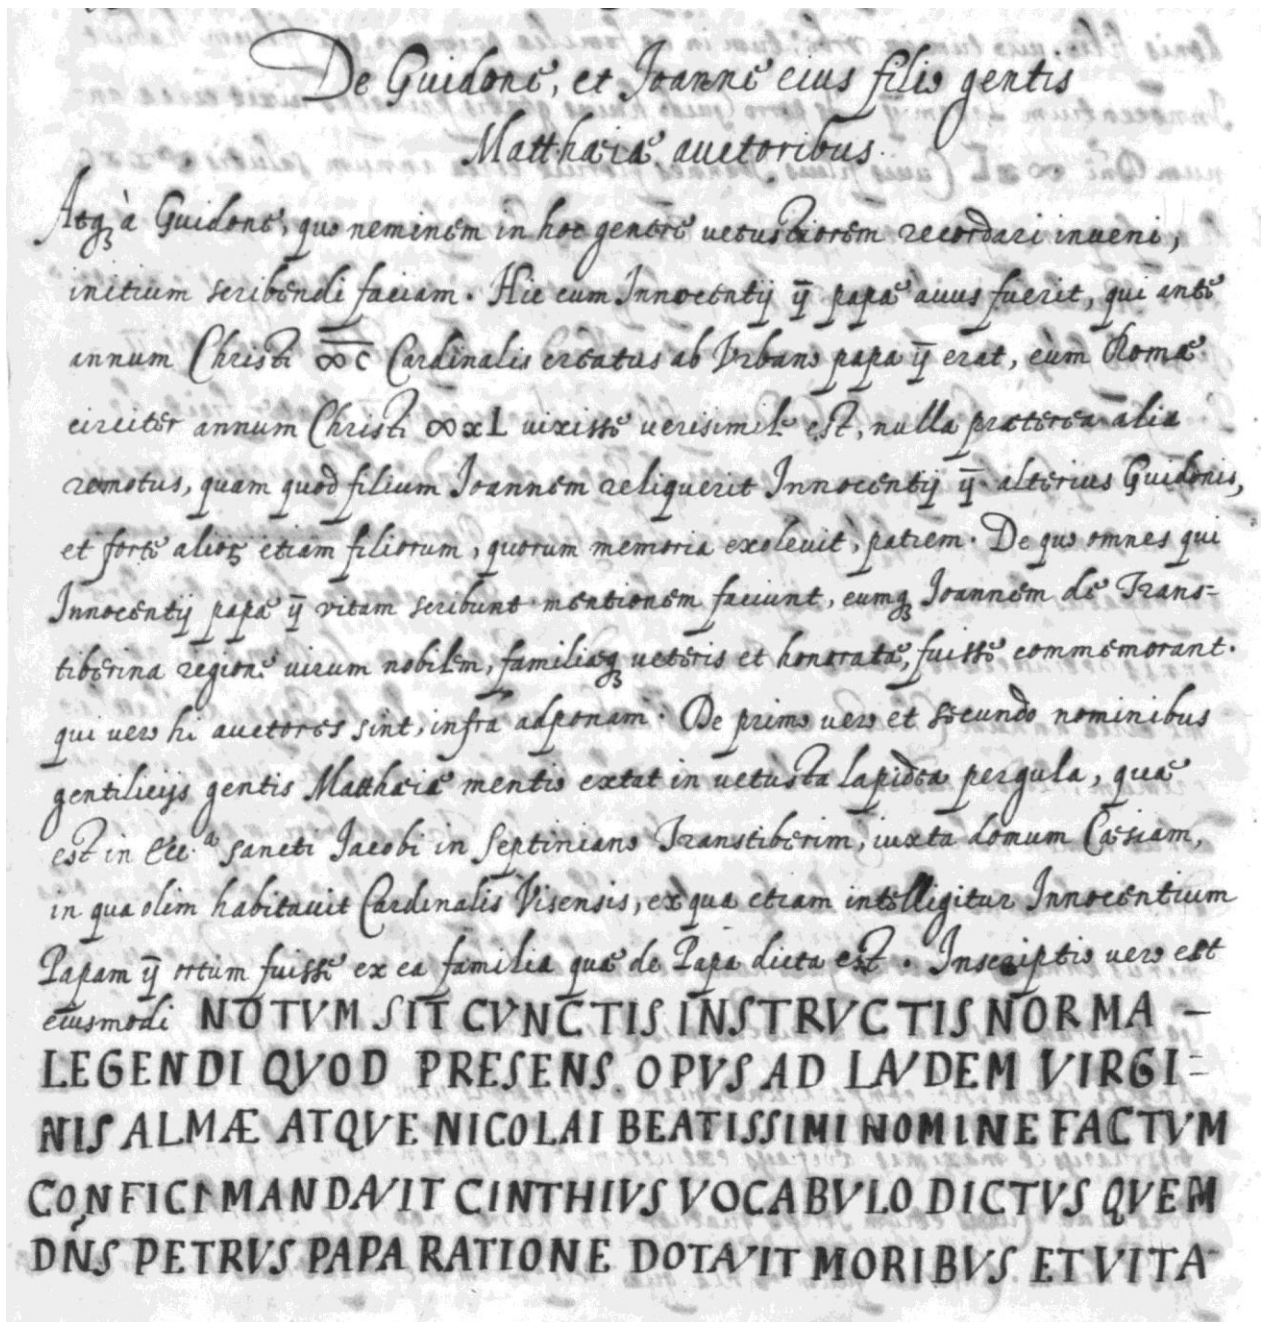 De Guidone, et Joanne eius filio gentis
Matthæiæ auctoribus.
Atq; à Guidone, quo neminem in hoc genere uetustiorem recordari inueni,
initium scribendi faciam. Hic cum Innocentij ij papæ auus fuerit, qui ante
annum Christi ∞c Cardinalis creatus ab Vrbano papa ij erat, eum Romæ
circiter annum Christi ∞xL uixisse uerisimile est, nulla præterea alia
re motus, quam quod filium Joannem reliquerit Innocentij ij alterius Guidonis,
et forte alioꝝ etiam filiorum, quorum memoria exoleuit, patrem. De quo omnes qui
Innocentij papæ ij vitam scribunt mentionem faciunt, eumq; Joannem de Trans-
tiberina regione uirum nobilem, familiæq; ueteris et honoratæ, fuisse commemorant.
qui uero hi auctores sint, infra adponam. De primo uero et secundo nominibus
gentilicijs gentis Matthæiæ mentio extat in uetusta lapidea pergula, quæ
est in Ecc.ª sancti Jacobi in Septiniano Transtiberim, iuxta domum Cæsiam,
in qua olim habitauit Cardinalis Visensis, ex qua etiam intelligitur Innocentium
Papam ij ortum fuisse ex ea familia quæ de Papa dicta est. Inscriptio uero est
eiusmodi NOTVM SIT CVNCTIS INSTRVCTIS NORMA -
LEGENDI QVOD PRESENS OPVS AD LAVDEM VIRGI=
NIS ALMÆ ATQVE NICOLAI BEATISSIMI NOMINE FACTVM
CONFICI MANDAVIT CINTHIVS VOCABVLO DICTVS QVEM
DÑS PETRVS PAPA RATIONE DOTAVIT MORIBVS ET VITA